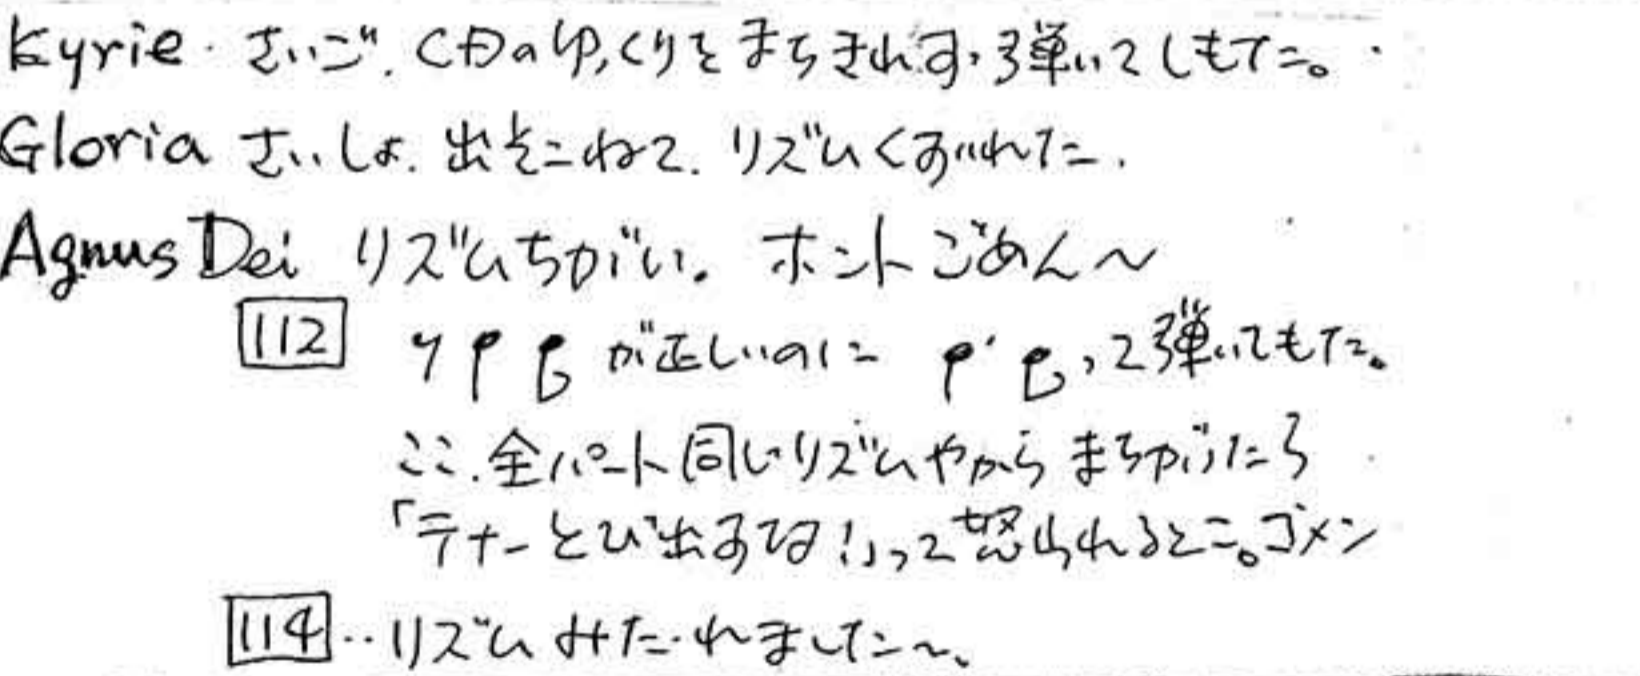 Kyrie. さいご. CDのゆっくりをまちきれず、弾いてしもた。
Gloria さいしょ. 出そこねて. リズムくずれた.
Agnus Dei リズムちがい。ホントごめん〜
112 が正しいのに って弾いてもた。
ここ.全パート同じリズムやから まちがったら
「テナーとび出すな!」って怒られるとこ。ゴメン
114‥リズムみだれました〜、